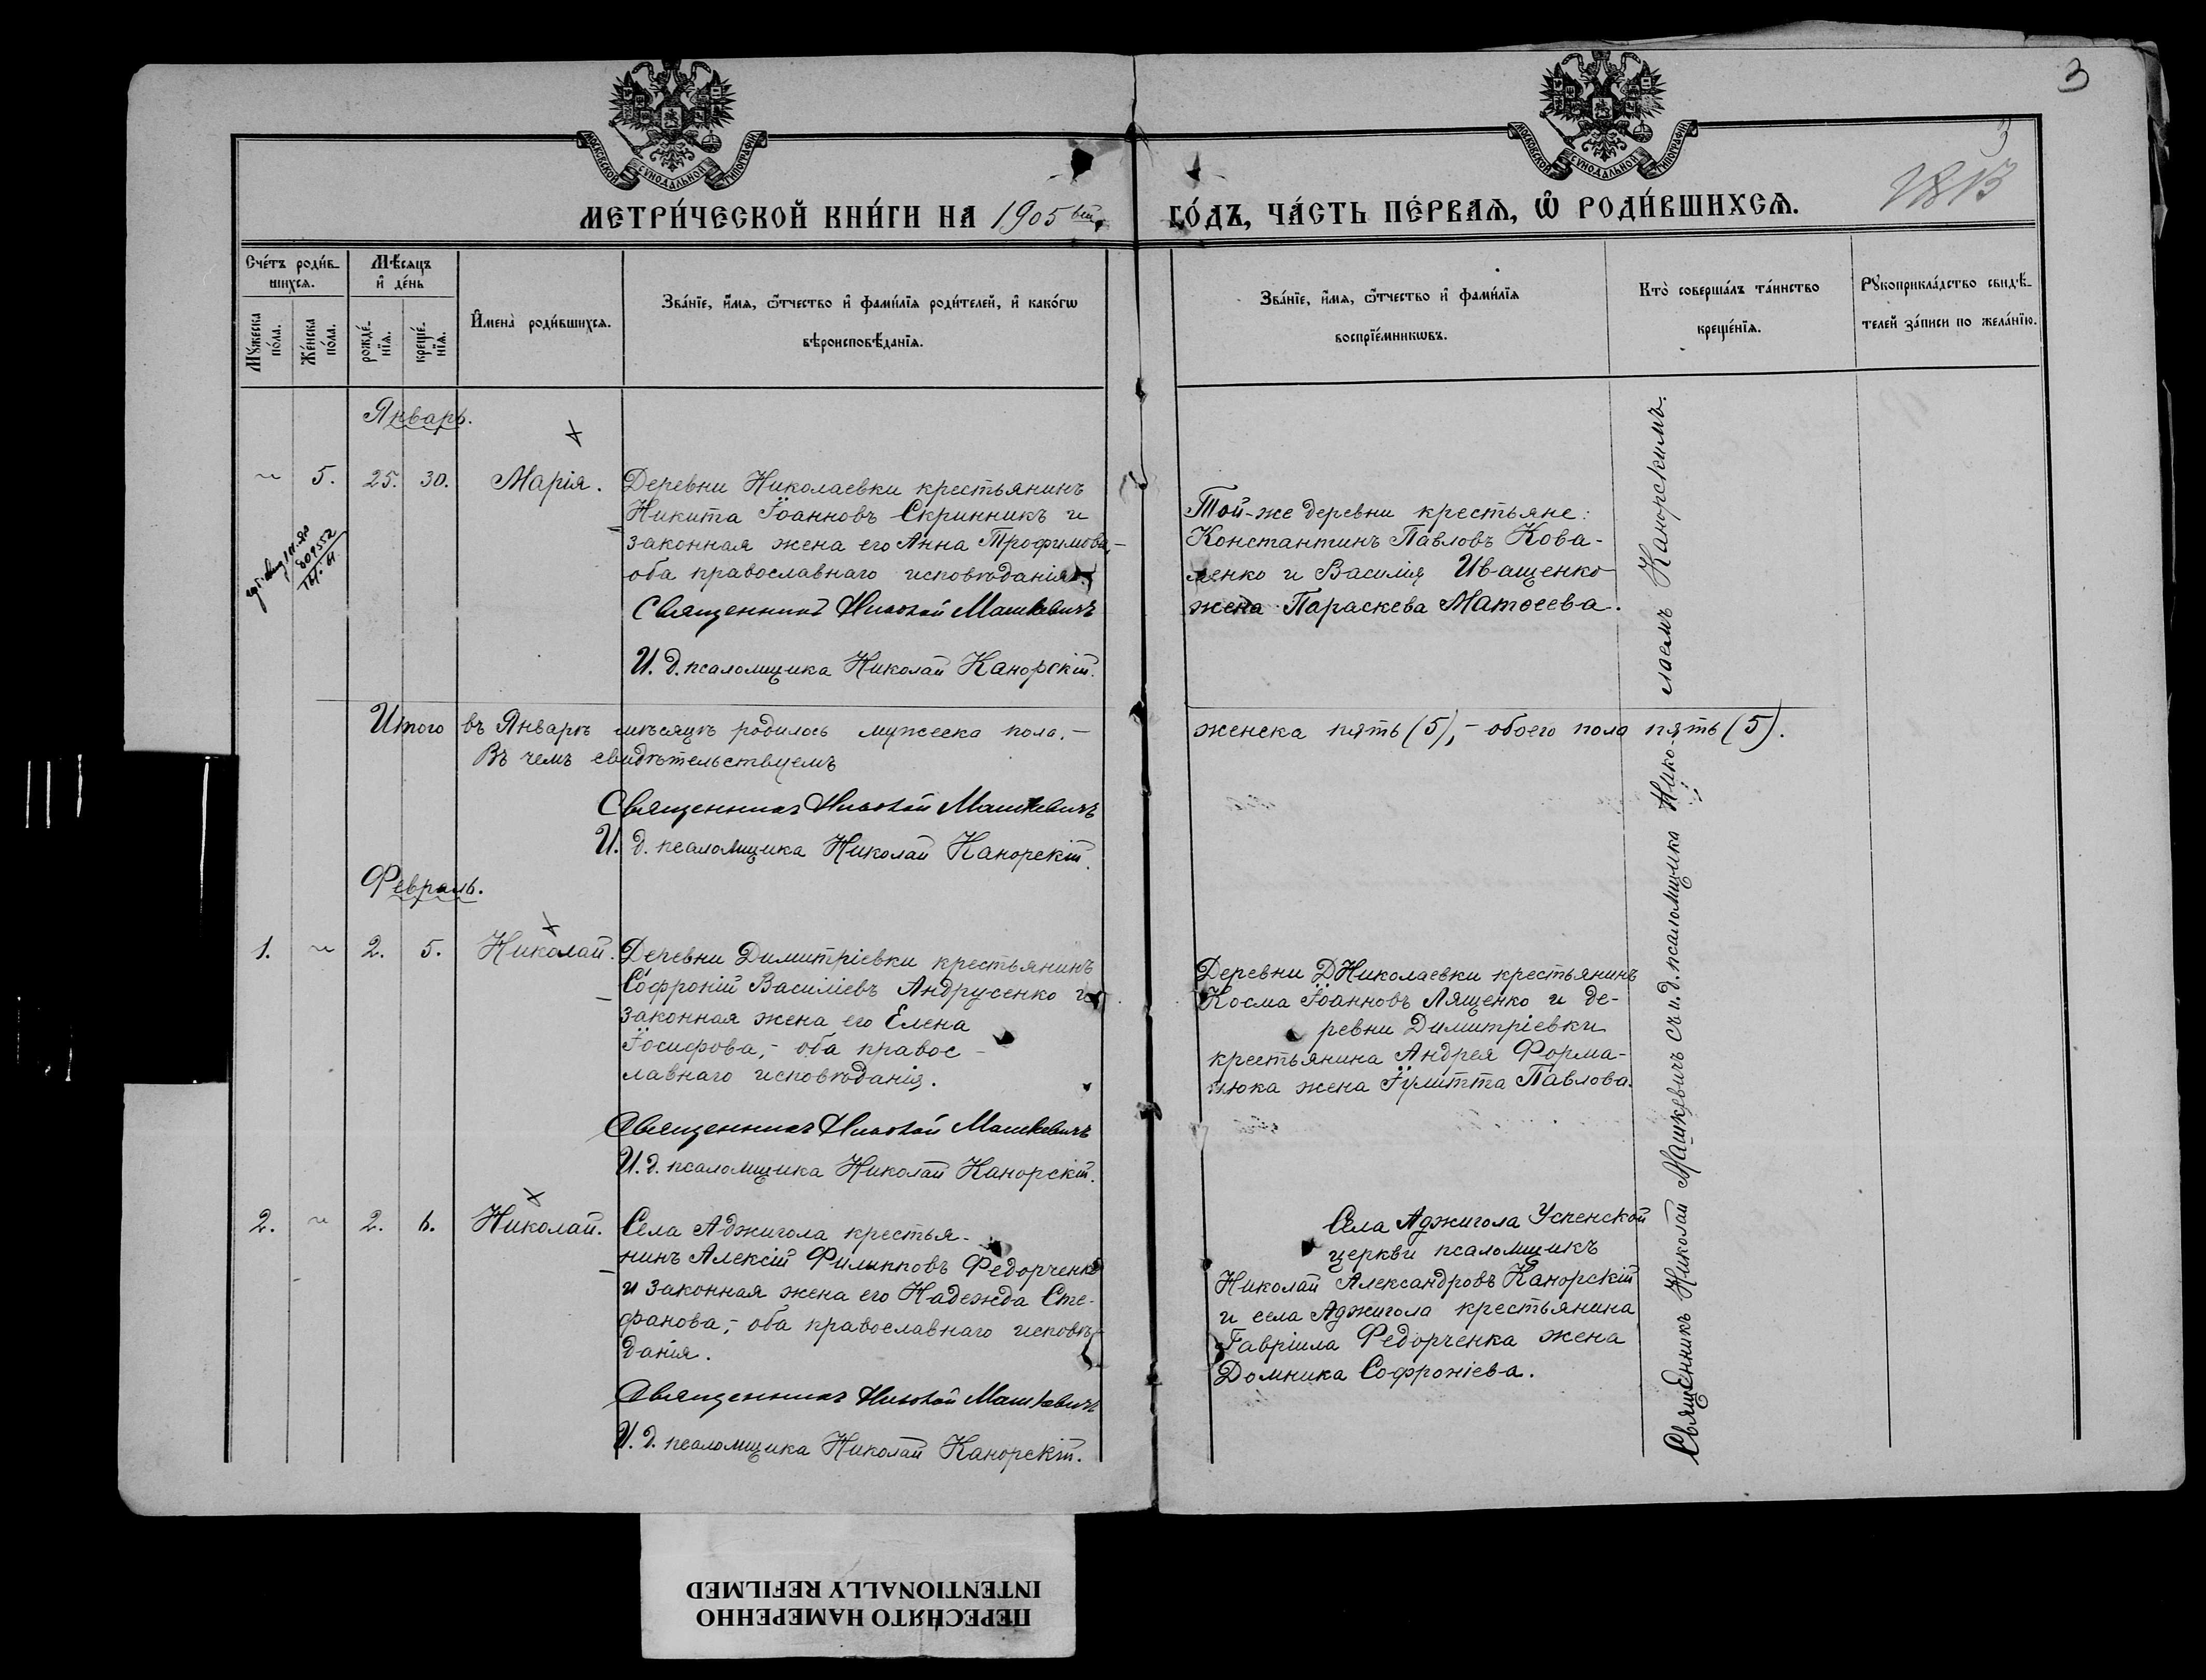 3
3
1813
МОСКОВСКОЙ СѴНОДАЛЬНОЙ ТИПОГРАФІИ
МОСКОВСКОЙ СѴНОДАЛЬНОЙ ТИПОГРАФІИ
МЕТРИ́ЧЕСКОЙ КНИ́ГИ НА 1905 ый,
ГО́ДЪ, ЧА́СТЬ ПЕ́РВАѦ, Ѽ РОДИ́ВШИХСѦ.
Сче́тъ роди́в-
шихсѧ.
Мꙋ́жеска по́ла.
Же́нска по́ла.
Мѣ́сѧцъ
и҆ де́нь
рожде́-
нїѧ.
креще́-
нїѧ.
И҆мена̀ роди́вшихсѧ.
Зва́нїе, и҆́мѧ, ѻ҆́тчество и҆ фами́лїѧ роди́телей, и҆ како́гѡ
вѣроисповѣ́данїѧ.
Зва́нїе, и҆́мѧ, ѻ҆́тчество и҆ фами́лїѧ
воспрїе́мникѡвъ.
Кто̀ соверша́лъ та́инство
креще́нїѧ.
Рꙋкоприкла́дство свидѣ́-
телей за́писи по жела́нїю.
Январь.
~ 5. 25. 30. Марія.
Деревни Николаевки крестьянинъ
Никита Іоанновъ Скринникъ и
законная жена его Анна Трофимова,-
оба православнаго исповѣданія.
Священникъ Николай Машкевичъ
И. д. псаломщика Николай Канорскій.
Той-же деревни крестьяне:
Константинъ Павловъ Кова-
ленко и Василія Иващенко
жена Параскева Матѳеева.
Итого въ Январѣ мѣсяцѣ родилось мужеска пола. -
женска пять (5), - обоего пола пять (5).
Въ чемъ свидѣтельствуемъ
Священникъ Николай Машкевичъ
И. д. псаломщика Николай Канорскій.
Февраль.
1. ~ 2. 5. Николай.
Деревни Димитріевки крестьянинъ
Софроній Василіевъ Андрусенко и
законная жена его Елена
Іосифова, - оба правос-
лавнаго исповѣданія.
Священникъ Николай Машкевичъ
И. д. псаломщика Николай Канорскій.
Деревни Д Николаевки крестьянинъ
Косма Іоанновъ Лященко и де-
ревни Димитріевки
крестьянина Андрея Форма-
нюка жена Іулитта Павлова.
2. ~ 2. 6. Николай.
Села Аджигола крестья-
нинъ Алексій Филипповъ Федорченко
и законная жена его Надежда Сте-
фанова, - оба православнаго исповѣ-
данія.
Священникъ Николай Машкевичъ
И. д. псаломщика Николай Канорскій.
Села Аджигола Успенской
церкви псаломщикъ
Николай Александровъ Канорскій
и села Аджигола крестьянина
Гавріила Федорченка жена
Домника Софроніева.
Священникъ Николай Машкевичъ съ и. д. псаломщика Нико-
лаемъ Канорскимъ.
ПЕРЕСНЯТО НАМЕРЕННО
INTENTIONALLY REFILMED